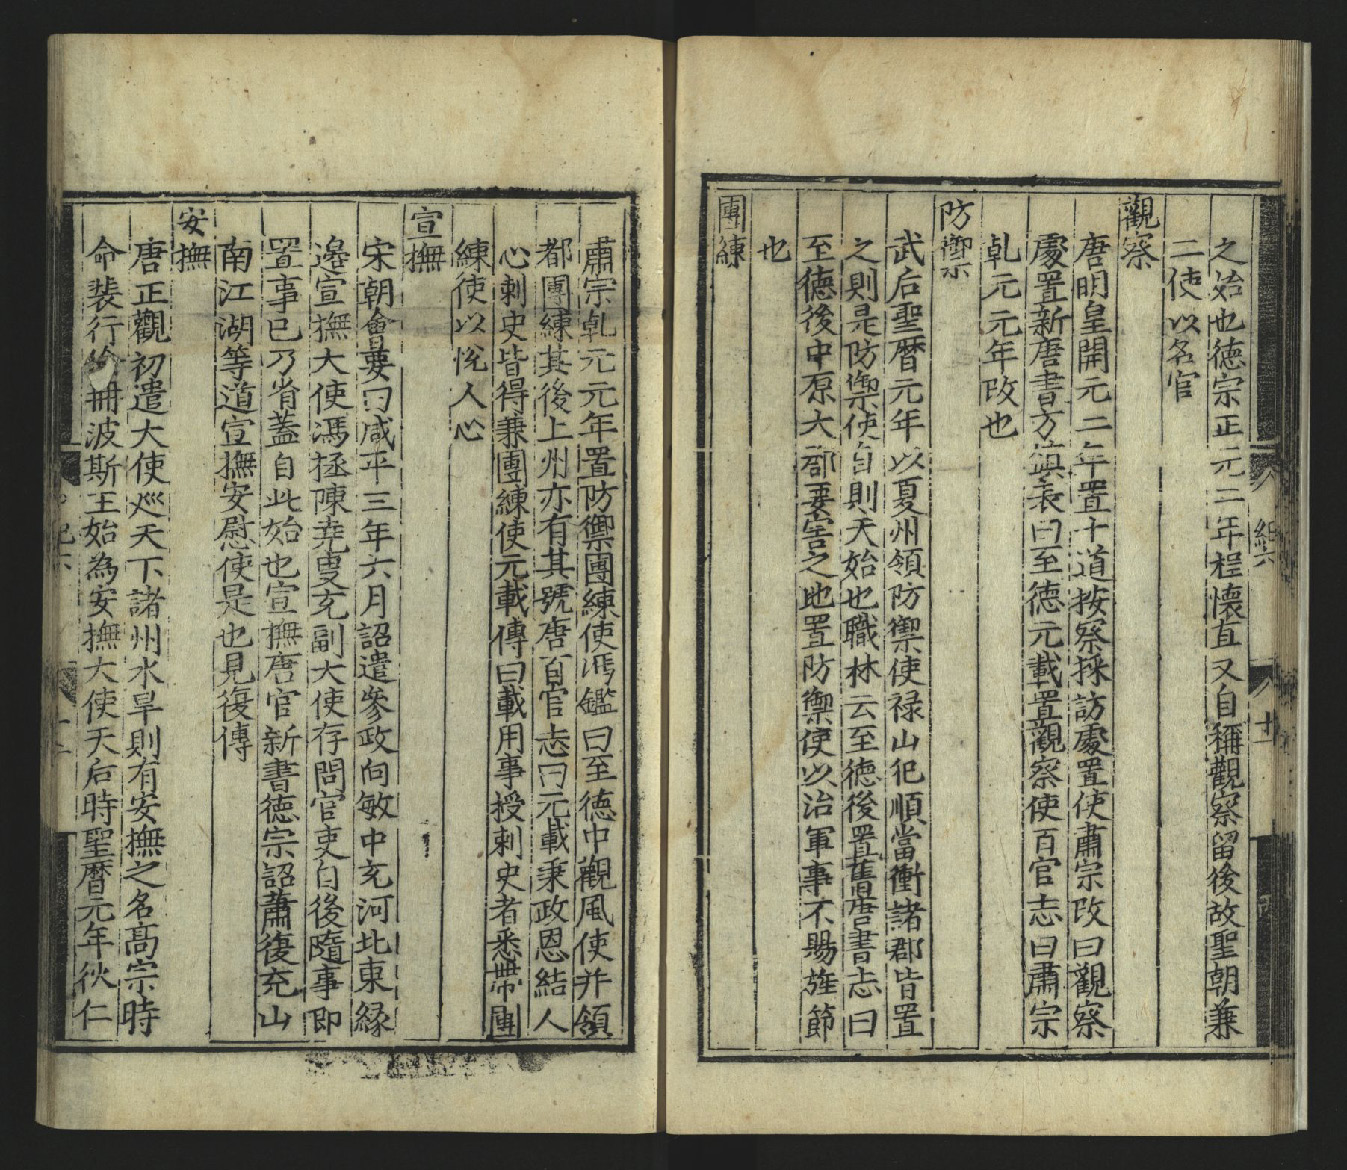 之始也德宗正元二年程懷直又自稱觀察留後故聖朝兼
二使以名官
觀察
唐明皇開元二年置十道按察採訪處置使肅宗改曰觀察
處置新唐書方鎮表曰至德元載置觀察使百官志曰肅宗
乹元元年改也
防禦
武后聖曆元年以夏州領防禦使禄山犯順當衝諸郡皆置
之則是防禦使自則天始也職林云至德後置舊唐書志曰
至德後中原大郡要害之地置防禦使以治軍事不賜旌節
也
團練
肅宗乹元元年置防禦團練使馮鑑曰至德中觀風使并領
都團練其後上州亦有其號唐百官志曰元載秉政思結人
心刺史皆得兼團練使元載傳曰載用事授刺史者悉帶團
練使以悅人心
宣撫
宋朝會要曰咸平三年六月詔遣參政向敏中充河北東緣
邊宣撫大使馮拯陳堯叟充副大使存問官吏自後隨事即
置事已乃省蓋自此始也宣撫唐官新書德宗詔蕭復充山
南江湖等道宣撫安慰使是也見復傳
安撫
唐正觀初遣大使廵天下諸州水旱則有安撫之名髙宗時
命裴行冊波斯王始為安撫大使天后時聖曆元年狄仁